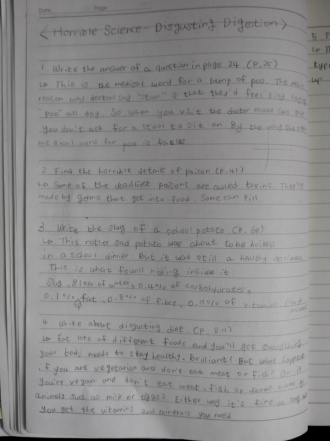 Date. Page.
< Horrible Science - Disgusting Digestion >
1. Write the answer of a question in page 24. (P. 25)
↳ This is the medical word for a lump of poo. The main
reason why doctors say "stool" is that they'd feel silly saying
"poo" all day. So when you visit the doctor make sure
you don't ask for a stool to sit on. By the way the
medical word for poo is faeces
2. Find the horrible details of poison (P. 41)
↳ Some of the deadliest poisons are called toxins. They're
made by germs that get into food. Some can kill
3. Write the of a school potato. (P. 60)
↳ This rotten old potato was about to be boiled
in a school dinner. But it was still a healthy
This is what found hiding inside it.
of water,
0.1% fat, of fibre, of vitamin
4. Write about disgusting diet. (P. 80)
↳ Eat lots of different foods and you'll get everything
your body needs to stay healthy. Brilliant! But what
if you are vegetarian and don't eat meat or fish? Or if
you're vegan and don't eat meat, fish or
animals such as milk or eggs? Either way it's fine as long as
you get the vitamins and minerals you need